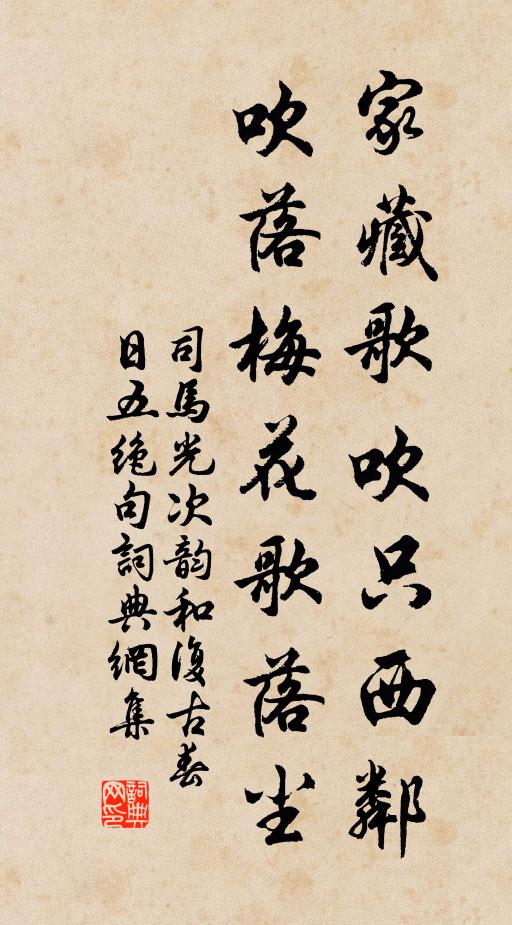 家藏歌吹只西鄰
吹落梅花歌落尘
司馬光次韵和復古春
日五绝句詞典網集
詞典
网印